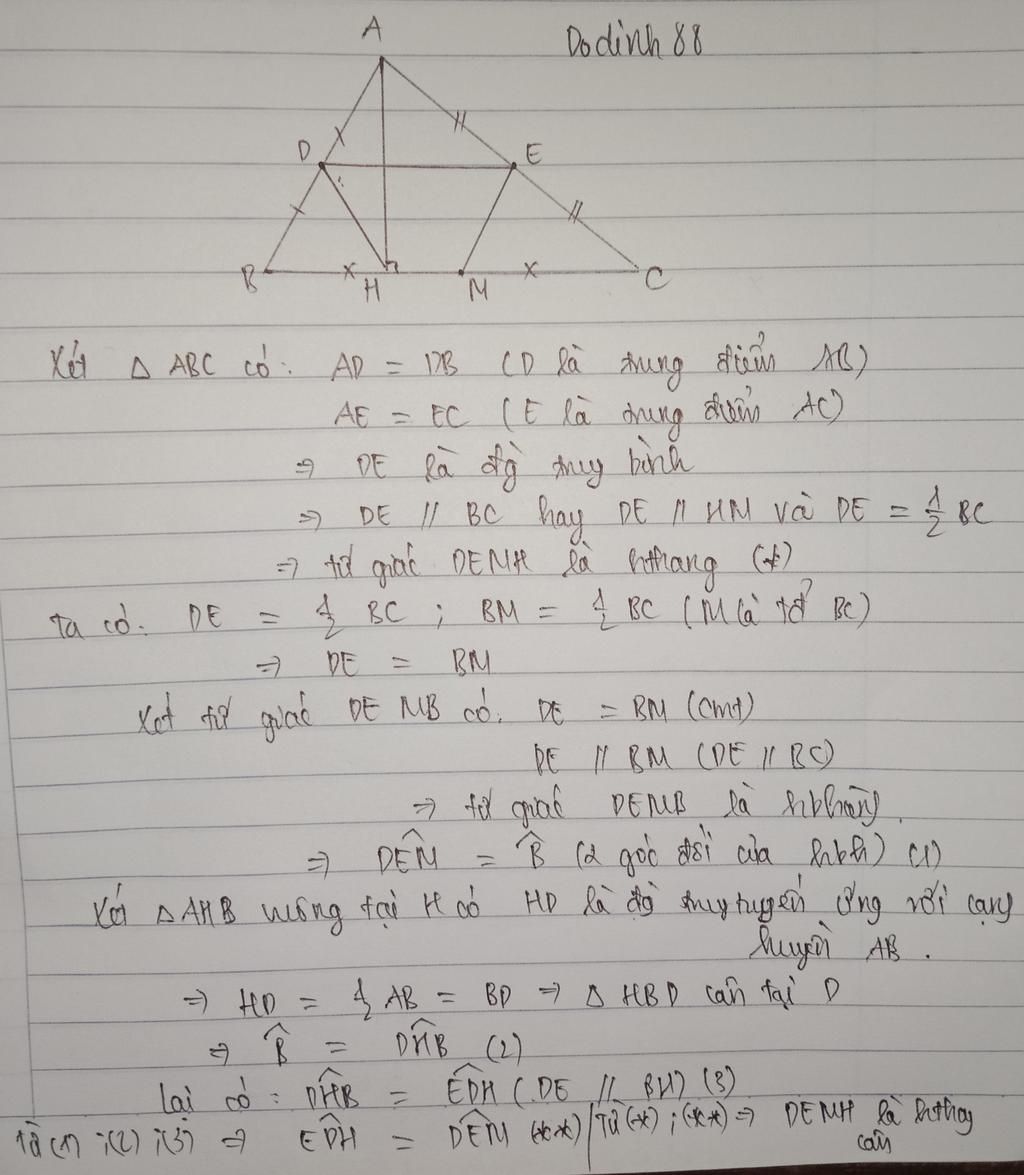 Dodinh 88
A
D
E
B
H
M
C
Xét △ ABC có: AD = DB (D là trung điểm AB)
AE = EC (E là trung điểm AC)
=> DE là đg trung bình
=> DE // BC hay DE // HM và DE = 1/2 BC
=> tứ giác DEMH là hthang (*)
Ta có: DE = 1/2 BC ; BM = 1/2 BC (M là tđ BC)
=> DE = BM
Xét tứ giác DEMB có: DE = BM (cmt)
DE // BM (DE // BC)
=> tứ giác DEMB là hbhành
=> DÊM = B̂ (2 góc đối của hbh) (1)
Xét △ AHB vuông tại H có HD là đg trung tuyến ứng với cạnh
huyền AB.
=> HD = 1/2 AB = BD => △ HBD cân tại D
=> B̂ = DĤB (2)
Lại có: DĤB = ED̂H (DE // BH) (3)
Từ (1) ;(2) ;(3) => ED̂H = DÊM (**) / Từ (*) ; (**) => DEMH là hthang
cân